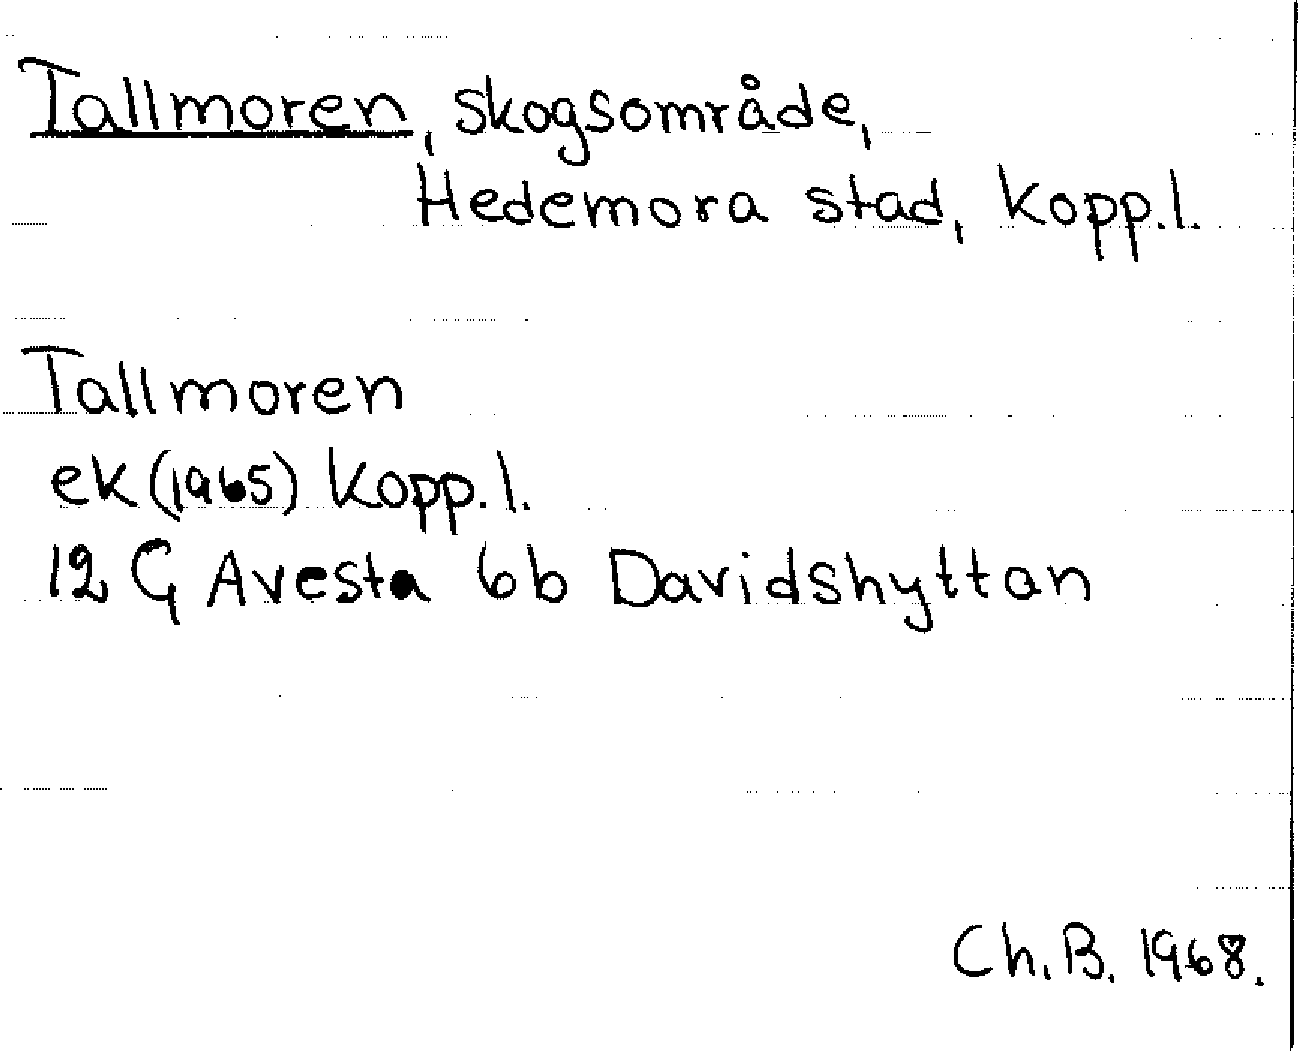 Tallmoren, skogsområde,
Hedemora stad, Kopp.l.
Tallmoren
ek (1965) Kopp.l.
12 G Avesta 6b Davidshyttan
Ch.B. 1968.